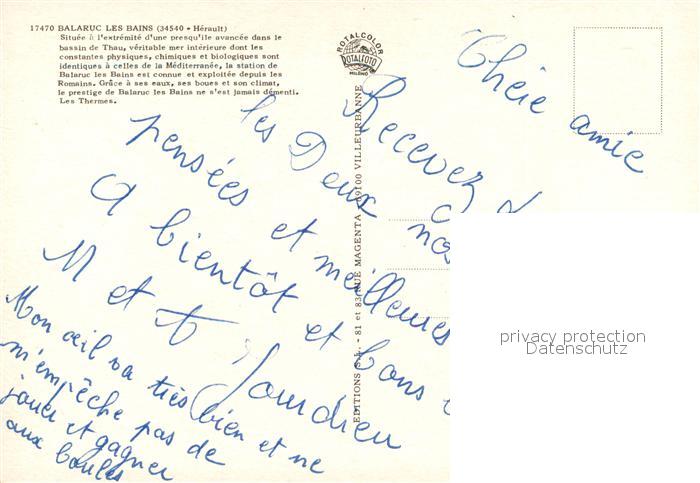 17470 BALARUC LES BAINS (34540 - Hérault)
Située à l'extrémité d'une presqu'ile avancée dans le
bassin de Thau, véritable mer intérieure dont les
constantes physiques, chimiques et biologiques sont
identiques à celles de la Méditerranée, la station de
Balaruc les Bains est connue et exploitée depuis les
Romains. Grâce à ses eaux, ses boues et son climat,
le prestige de Balaruc les Bains ne s'est jamais démenti.
Les Thermes.
ROTALCOLOR
ROTALFOTO
MILANO
EDITIONS S.L. - 81 et 83 RUE MAGENTA - 69100 VILLEURBANNE
Chère amie
Recevez
les Deux nos
pensées et meilleures
A bientôt et bons
M et A Jourdieu
Mon œil va très bien et ne
m'empêche pas de
jouer et gagner
aux boules
privacy protection
Datenschutz